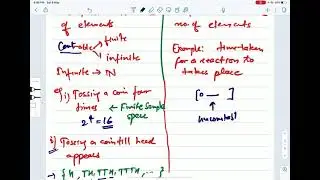 of elements
Countable
finite
infinite
Infinite → ℕ
eg i) Tossing a coin four
times ← Finite Sample
space
2⁴ = 16
ii) Tossing a coin till head
appears
→ {H, TH, TTH, TTTH, ...}
no. of elements
Example: time taken
for a reaction to
takes place
[0 — ]
uncountabl